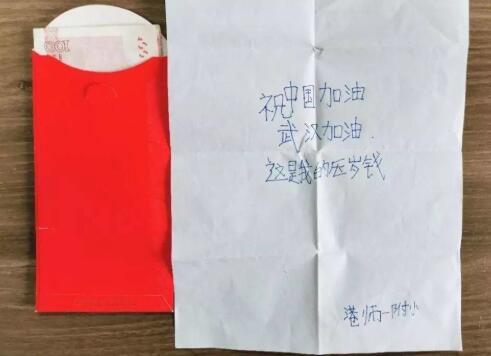 100
祝中国加油
武汉加油.
这是我的压岁钱
港师一附小